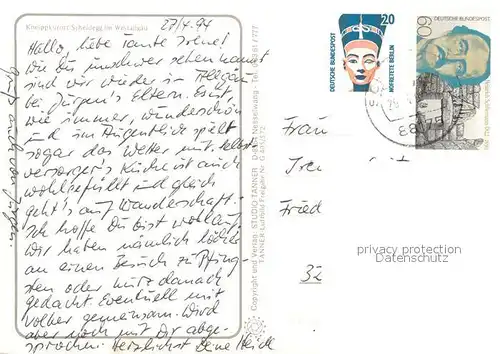 Kneippkurort Scheidegg im Westallgäu
27/4.94
Hallo, liebe Tante Irene!
Wie Du unschwer sehen kannst
sind wir wieder im Allgäu
bei Jürgen's Eltern. Es ist,
wie immer, wunderschön
und im Augenblick spielt
sogar das Wetter mit. Selbst-
versorger's Küche ist auch
wohlgefüllt und gleich
geht's auf Wanderschaft.
Ich hoffe Du bist wohlauf,
Wir haben nämlich
an einen Besuch zu Pfing-
sten oder kurz danach
gedacht. Eventuell mit
Volker gemeinsam. Wird
aber noch mit Dir abge-
sprochen. Herzlichst Deine Heidi
Gruß auch von Jürgen.
Copyright und Verlag: STUDIO TANNER
TANNER-Luftbild
Nesselwang
DEUTSCHE BUNDESPOST
20
NOFRETETE BERLIN
DEUTSCHE BUNDESPOST
60
Frau
Iren
Fried
32
privacy protection
Datenschutz